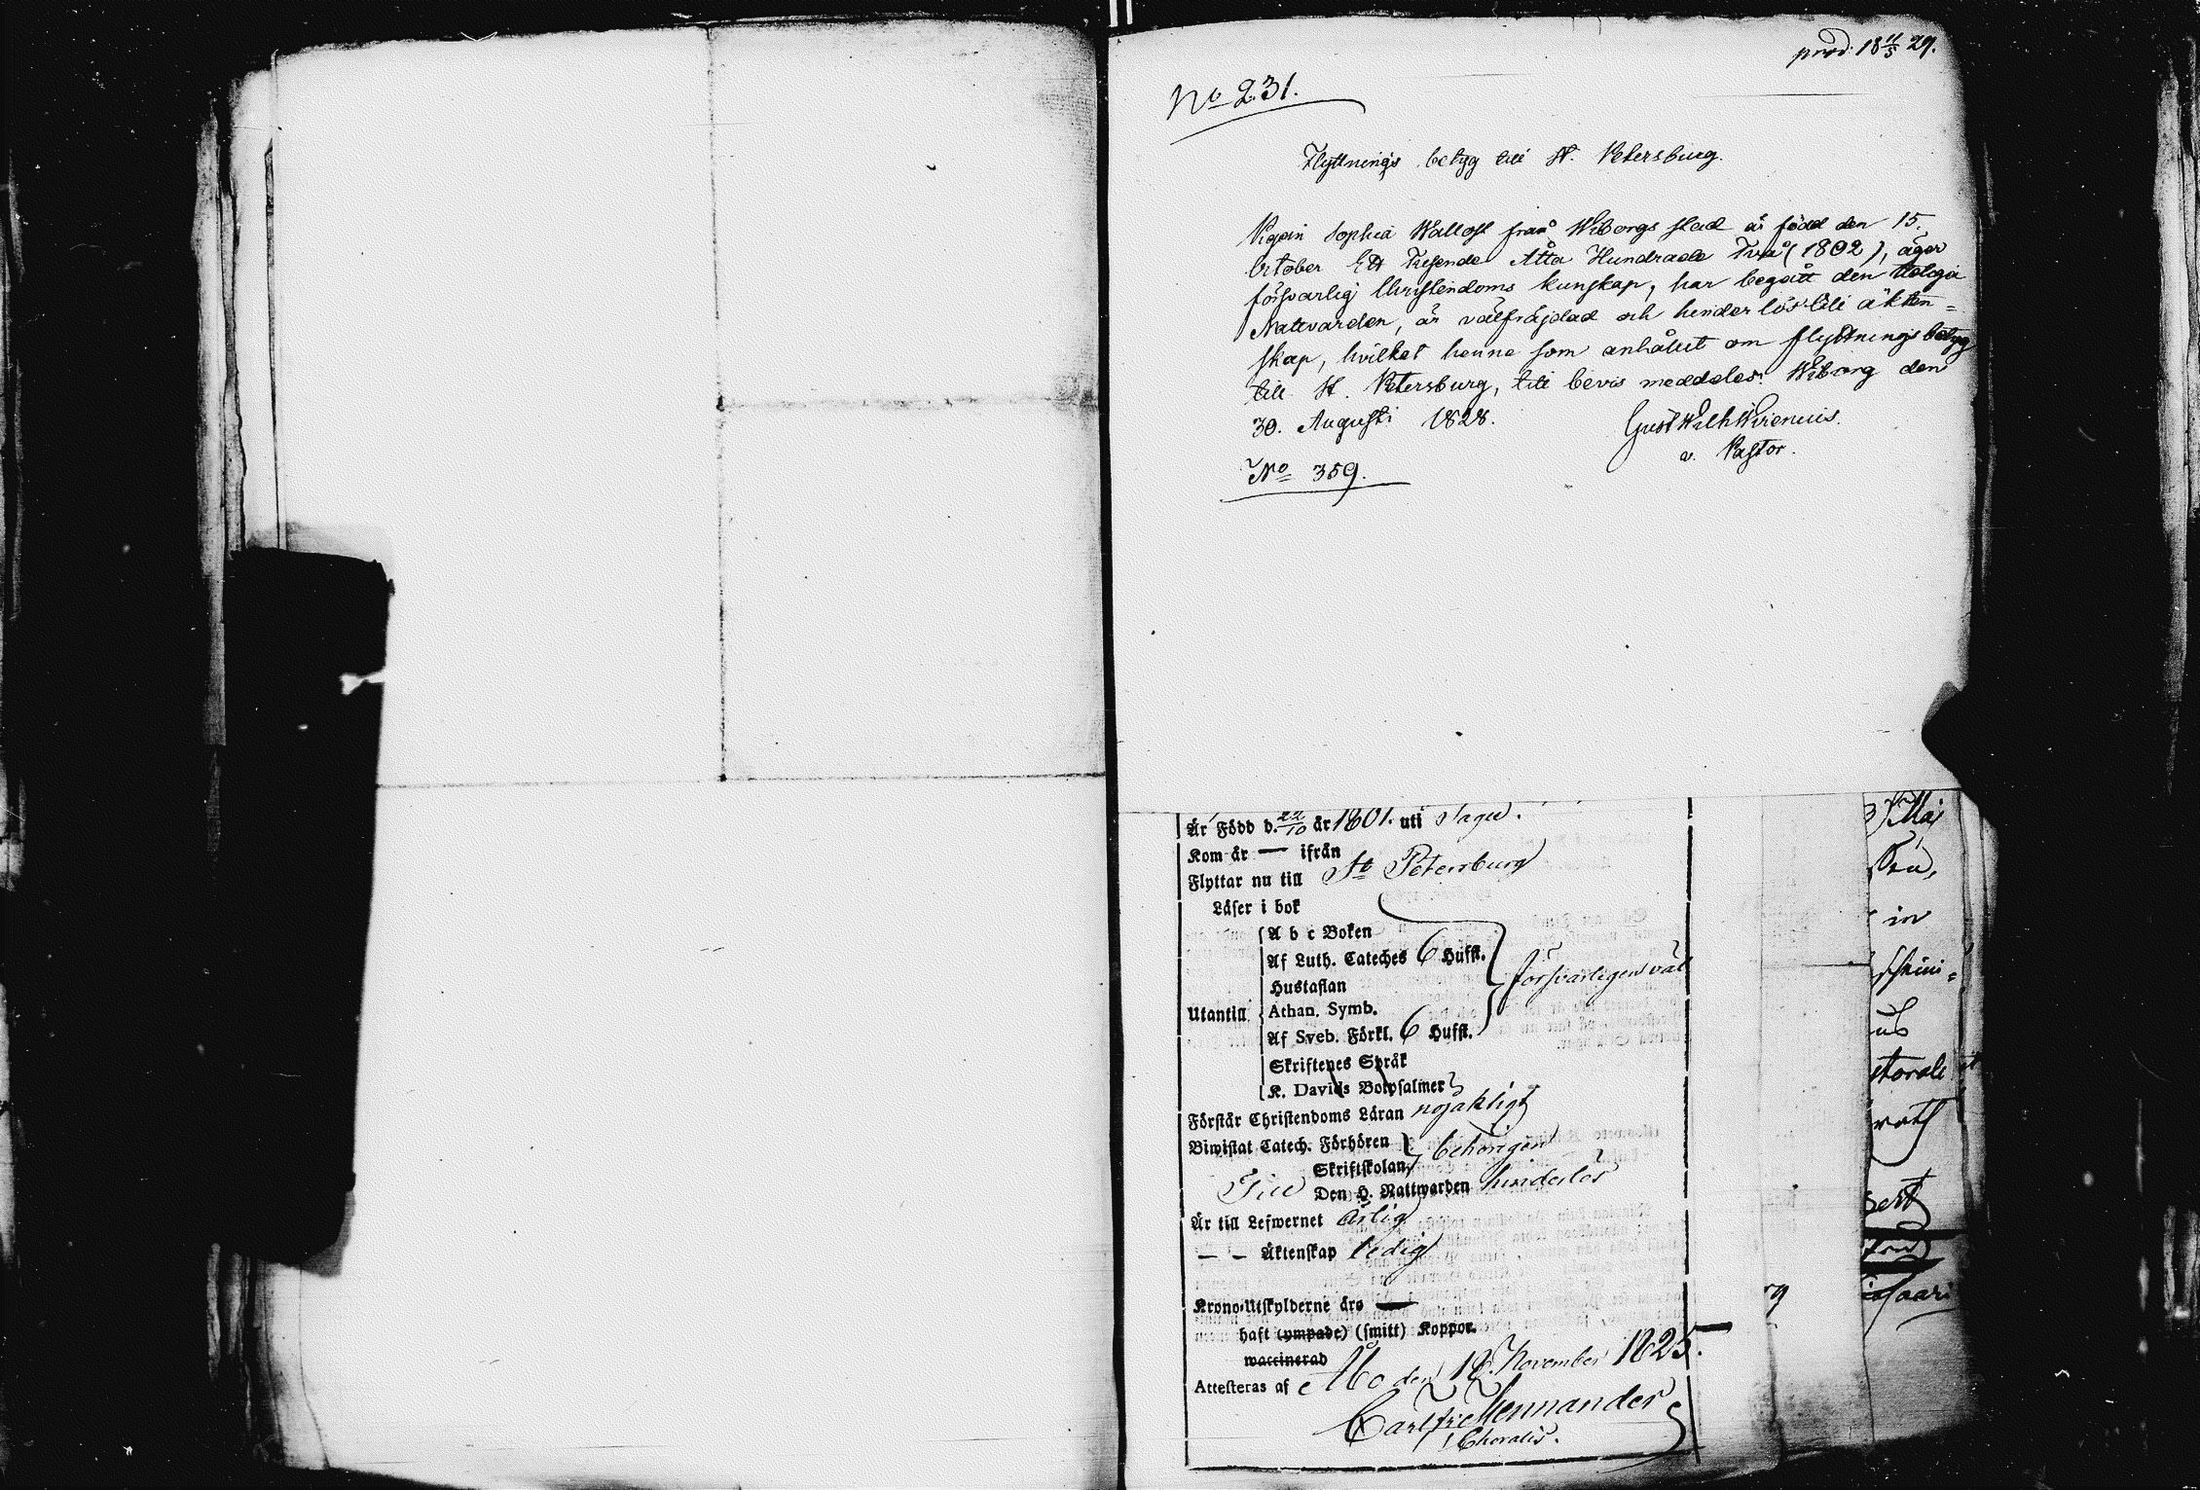 prod. 18 11/5 29.
No 231.
Flyttnings betyg till St. Petersburg.
Pigan Sophia Wallosk från Wiborgs stad är född den 15.
October Ett Tusende Åtta Hundrade Två (1802), äger
försvarlig Christendoms kunskap, har begått den Heliga
Nattvarden, är välfräjdad och hinderlös till äkten=
skap, hvilket henne som anhållit om flyttningsbetyg
till St. Petersburg, till bevis meddelas. Wiborg den
30. Augusti 1828.
Gust Wilh Wirenius.
v. Pastor.
No 359.
Är Född d. 22/10 år 1801. uti Sagu.
Kom år — ifrån
Flyttar nu till St Petersburg
Läser i bok
A b c Boken
Af Luth. Cateches 6 Hufst.
Hustaflan
försvarligen väl
Utantill Athan. Symb.
Af Sveb. Förkl. 6 Hufst.
Skriftenes Språk
K. Davids Botpsalmer
Förstår Christendoms Läran nöjaktigt
Biwistat Catech. Förhören behörigen
Skriftskolan
Till Den H. Nattwarden hinderlös
Är till Lefwernet ärlig
— — Äktenskap ledig
Krono-Utskylderne äro —
haft (ympade) (smitt) Koppor.
waccinerad
Attesteras af Åbo den 18. November 1825.
Mennander
3 Maj
in
us
storali
rath